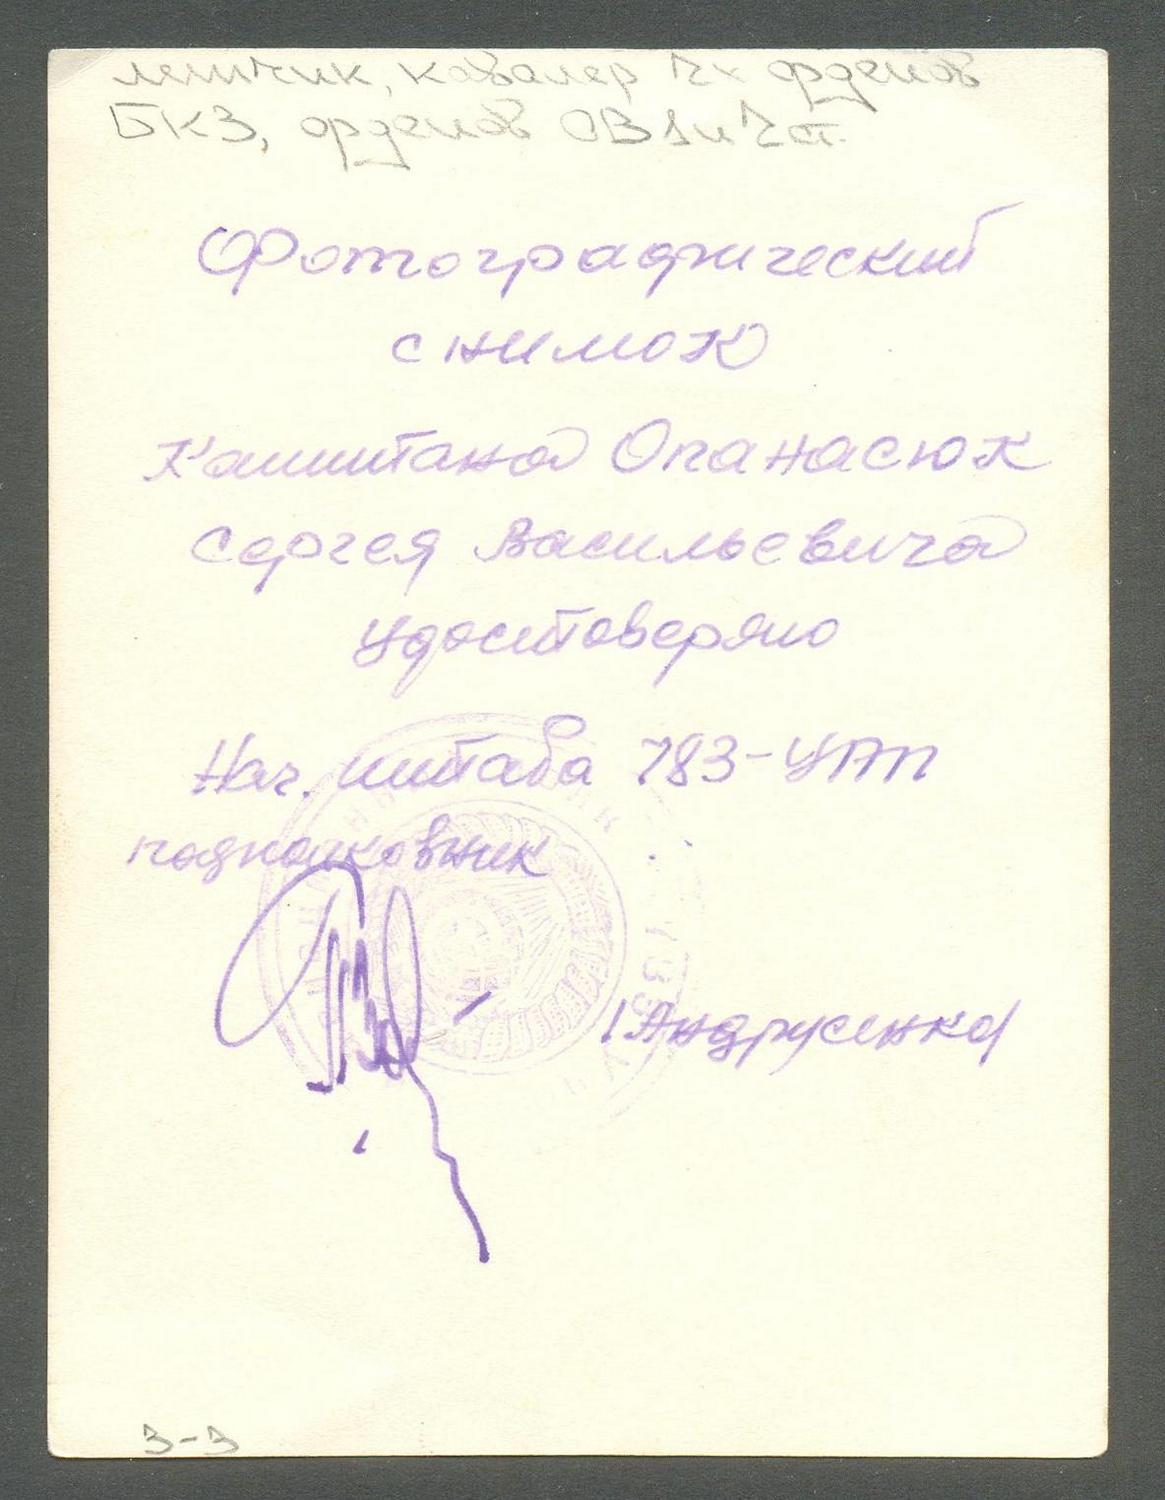 летчик, кавалер 2х орденов
БКЗ, орденов ОВ 1 и 2 ст.
Фотографический
снимок
Капитана Опанасюк
Сергея Васильевича
удостоверяю
Нач. штаба 783-УАП
подполковник
/Андрусенко/
3-3